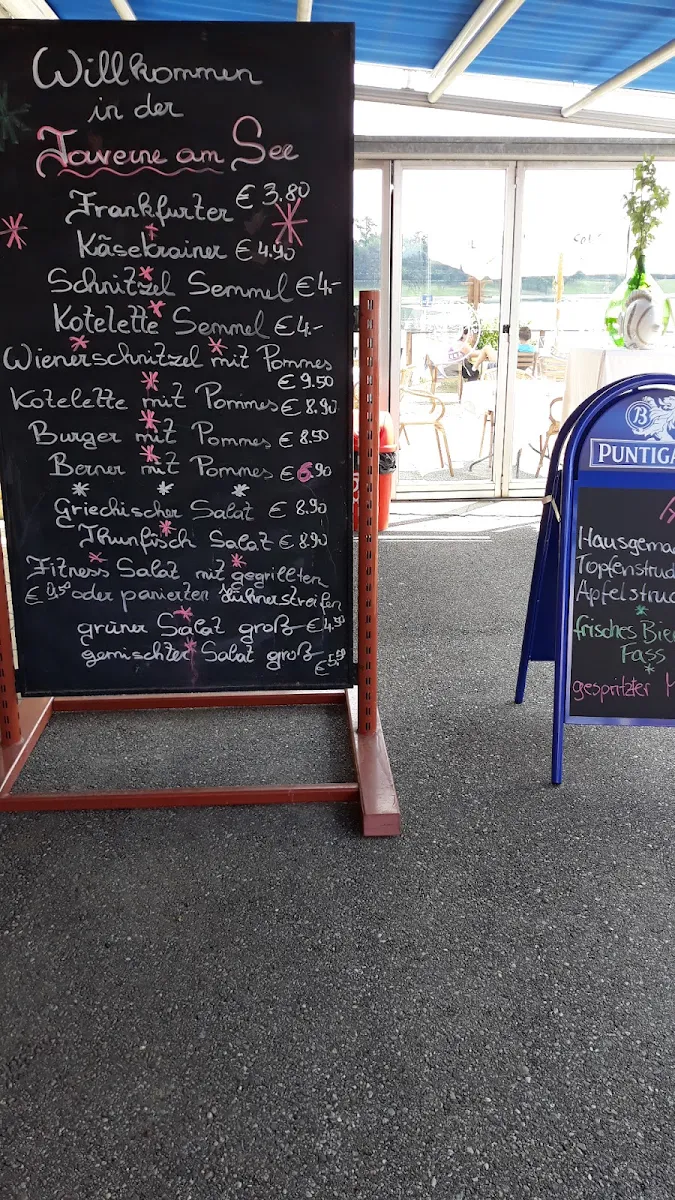 Willkommen
in der
Taverne am See
Frankfurter € 3.80
Käsekrainer € 4.90
Schnitzel Semmel € 4.-
Kotelette Semmel € 4.-
Wienerschnitzel mit Pommes
€ 9.50
Kotelette mit Pommes € 8.90
Burger mit Pommes € 8.50
Berner mit Pommes € 6.90
Griechischer Salat € 8.90
Thunfisch Salat € 8.90
Fitness Salat mit gegrillten
€ 9,50 oder panierten Hühnerstreifen
grüner Salat groß € 4.90
gemischter Salat groß € 5.50
PUNTIGA
Hausgema
Topfenstrud
Apfelstruc
frisches Bie
Fass
gespritzter M